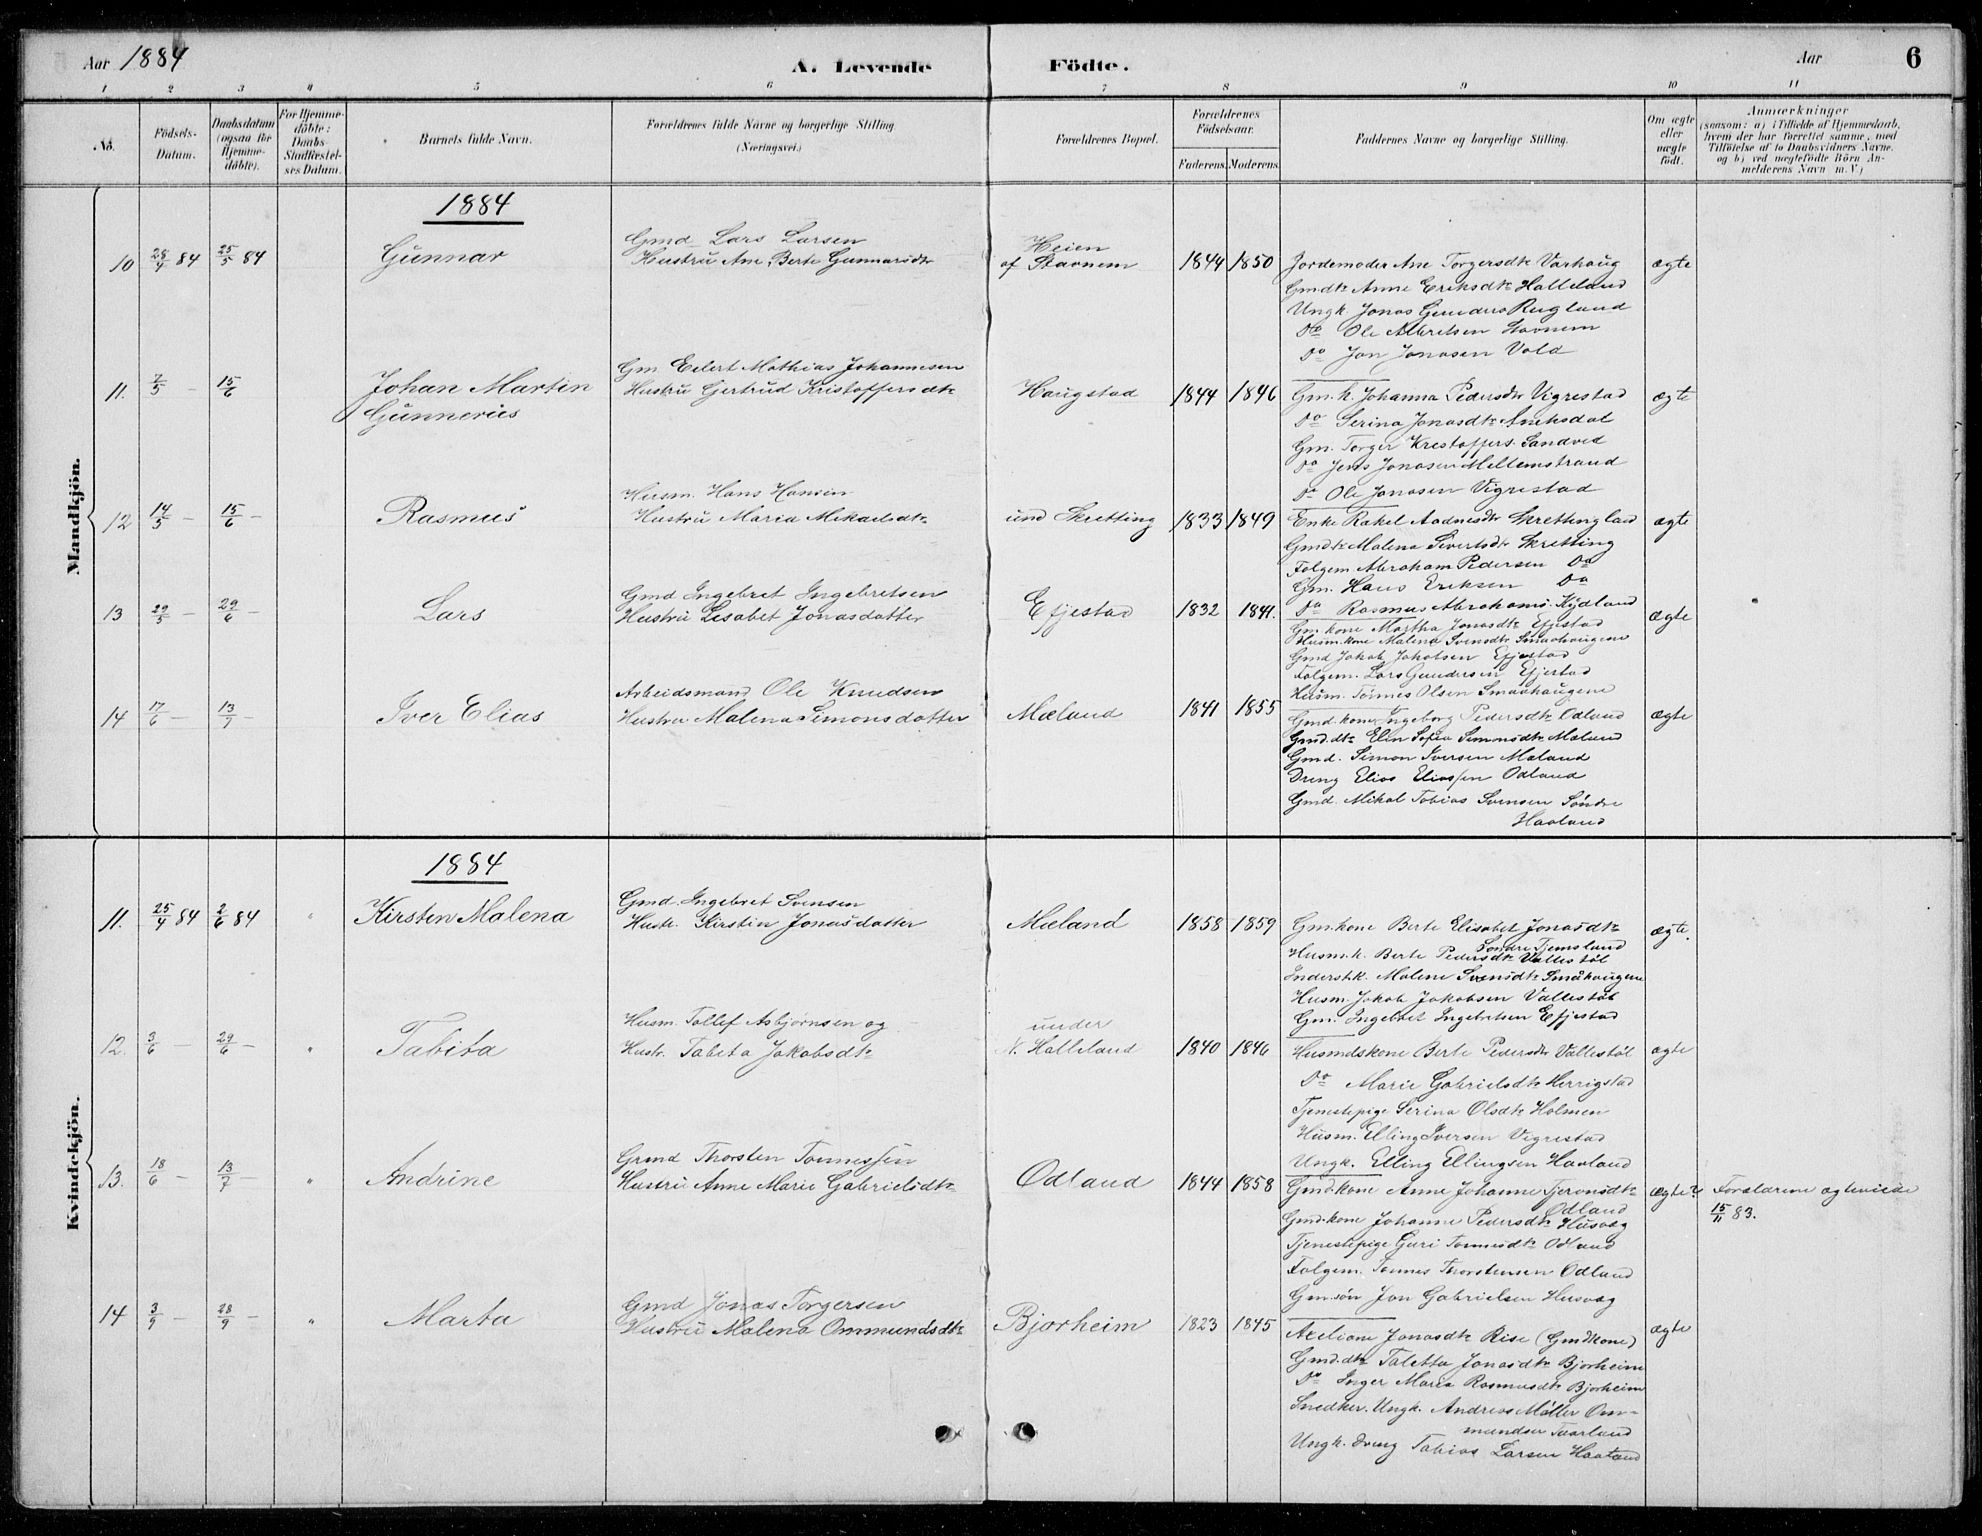 Aar 1884
A. Levende Födte.
Aar
6
1 2 3 4 5 6 7 8 9 10 11
No.
Födsels-Datum.
Daabsdatum (ogsaa for Hjemmedöbte).
For Hjemmedöbte: Daabs-Stadfestelses Datum.
Barnets fulde Navn.
Forældrenes fulde Navne og borgerlige Stilling (Næringsvei.)
Forældrenes Bopæl.
Forældrenes Födselsaar.
Faderens. Moderens.
Faddernes Navne og borgerlige Stilling.
Om ægte eller uægte födt.
Anmærkninger
(saasom: a) i Tilfælde af Hjemmedaab, hvem der har forrettet samme, med Tilföielse af to Daabsvidners Navne, og b) ved uægtefödte Börn Anmelderens Navn m. V.)
Mandkjön.
1884
10 28/4 84 25/5 84 Gunnar
Gmd Lars Larsen
Hustru Ane Berte Gunnarsdtr
Heien
af Stavnem
1844 1850
Jordemoder Ane Torgersdtr Varhaug
Gm.dtr Anne Eriksdtr Halleland
Ungk. Jonas Rugland
Do Ole Albretsen Stavnem
Do Jon Jonasen Vold
ægte
11. 7/5 - 15/6 Johan Martin
Gunnerius
Gm Eilert Mathias Johannesen
Hustru Gjertrud Kristoffersdtr
Haugstad
1844 1846
Gm.k. Johanna Pedersdtr Vigrestad
Do Serina Jonasdtr Aniksdal
Gm. Torger Kristoffers. Sandved
Do Jens Jonasen Mellemstrand
Do Ole Jonasen Vigrestad
ægte
12 14/5 - 15/6 - Rasmus
Husm. Hans Hansen
Hustru Maria Mikaelsdtr
und Skretting
1833 1849
Enke Rakel Aadnesdtr Skrettingland
Gmdtr Malena Sivertsdtr Skretting
Folgem. Abraham Pedersen Do
Gm. Hans Eriksen Do
Do Rasmus Abrahams. Kydland
ægte
13 29/5 - 29/6 - Lars
Gmd Ingebret Ingebretsen
Hustru Lisabet Jonasdatter
Efjestad
1832 1841.
Gm kone Martha Jonasdtr Efjestad
Husm.kone Malena Svensdtr Smaahaugene
Gmd Jakob Jakobsen Efjestad
Folgem. Lars Gundersen Efjestad
Husm. Tönnes Olsen Smaahaugene
ægte
14 17/6 - 13/7 - Iver Elias
Arbeidsmand Ole Knudsen
Hustru Malena Simonsdatter
Mæland
1841 1855
Gmd.kone Ingeborg Pedersdtr Odland
Gmd.dtr Elin Sofia Simonsdtr Mæland
Gmd. Simon Iversen Mæland
Dreng Elias Eliassen Odland
Gmd. Mikal Tobias Svensen Söndre
Haaland
ægte
Kvindekjön.
1884
11. 25/4 84 2/6 84 " Kirsten Malena
Gmd. Ingebret Svensen
Hustr. Kirstin Jonasdatter
Mæland
1858 1859
Gm.kone Berte Elisabet Jonasdtr
Söndre Tjemsland
Husm.k. Berte Pedersdtr Vallestöl
Inderstk. Malene Svensdtr Smaahaugene
Husm. Jakob Jakobsen Vallestöl
Gm. Ingebret Ingebretsen Efjestad
ægte.
12. 3/6 - 29/6 - " Tabita
Husm. Tollef Asbjörnsen og
Hustr. Tabita Jakobsdtr
under
N. Halleland
1840 1846
Husmdskone Berte Pedersdtr Vallestöl
Do Marie Gabrielsdtr Herrigstad
Tjenestepige Serina Olsdtr Holmen
Husm. Elling Iversen Vigrestad
Ungk. Elling Ellingsen Haaland
ægte
13. 18/6 - 13/7 - " Andrine
Grmd Thorsten Tonnessen
Hustru Anne Marie Gabrielsdtr
Odland
1844 1858
Gmd.kone Anne Johanne
Odland
Gmd.kone Johanne Pedersdtr Husvæg
Tjenestepige Guri Tonnesdtr Odland
Folgem. Tonnes Thorstensen Odland
Gm.sön Jon Gabrielsen Husvæg
ægte? Forældrene ægteviede
15/11 83.
14 3/9 - 28/9 - " Marta
Gmd Jonas Torgersen
Hustru Malena Ommundsdtr
Bjorheim
1823 1845
Axeliane Jonasdtr Rise (Gmdkone)
Gmd.dtr Taletta Jonasdtr Bjorheim
Do Inger Maria Rasmusdtr Bjorheim
Snedker. Ungk. Andreas Möller Om-
mundsen Taarland
Ungk. dreng Tobias Larsen Haaland
ægte